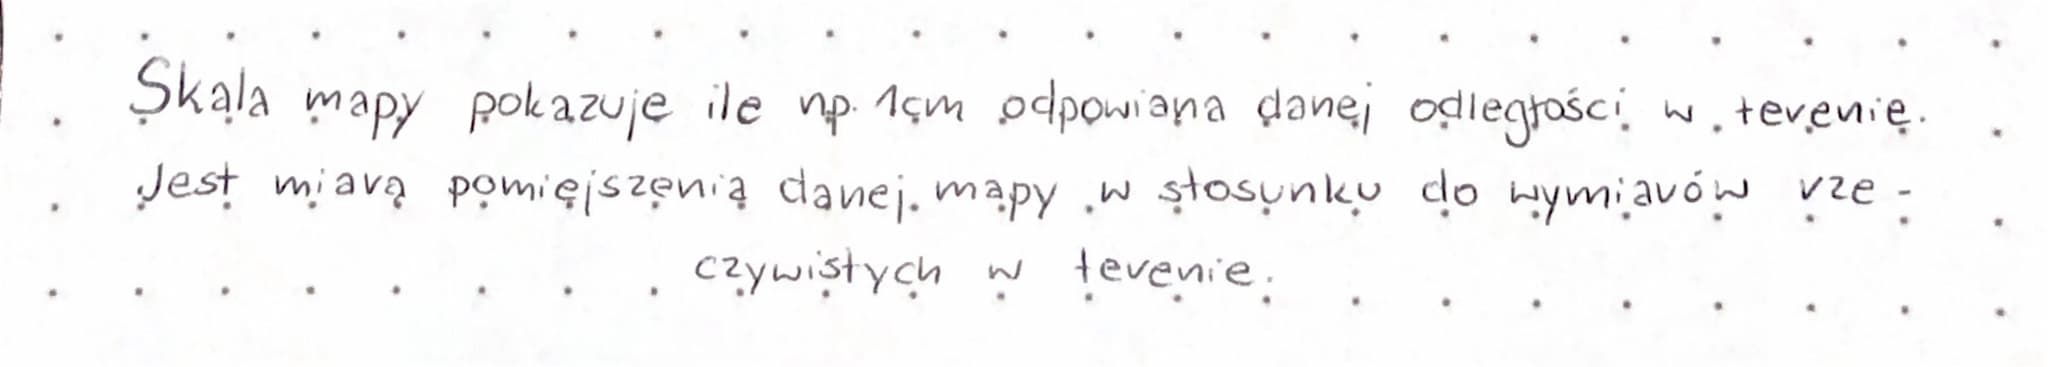 Skala mapy pokazuje ile np. 1cm odpowiana danej odległości w terenie.
Jest miarą pomiejszenia danej mapy w stosunku do wymiarów rze-
czywistych w terenie.